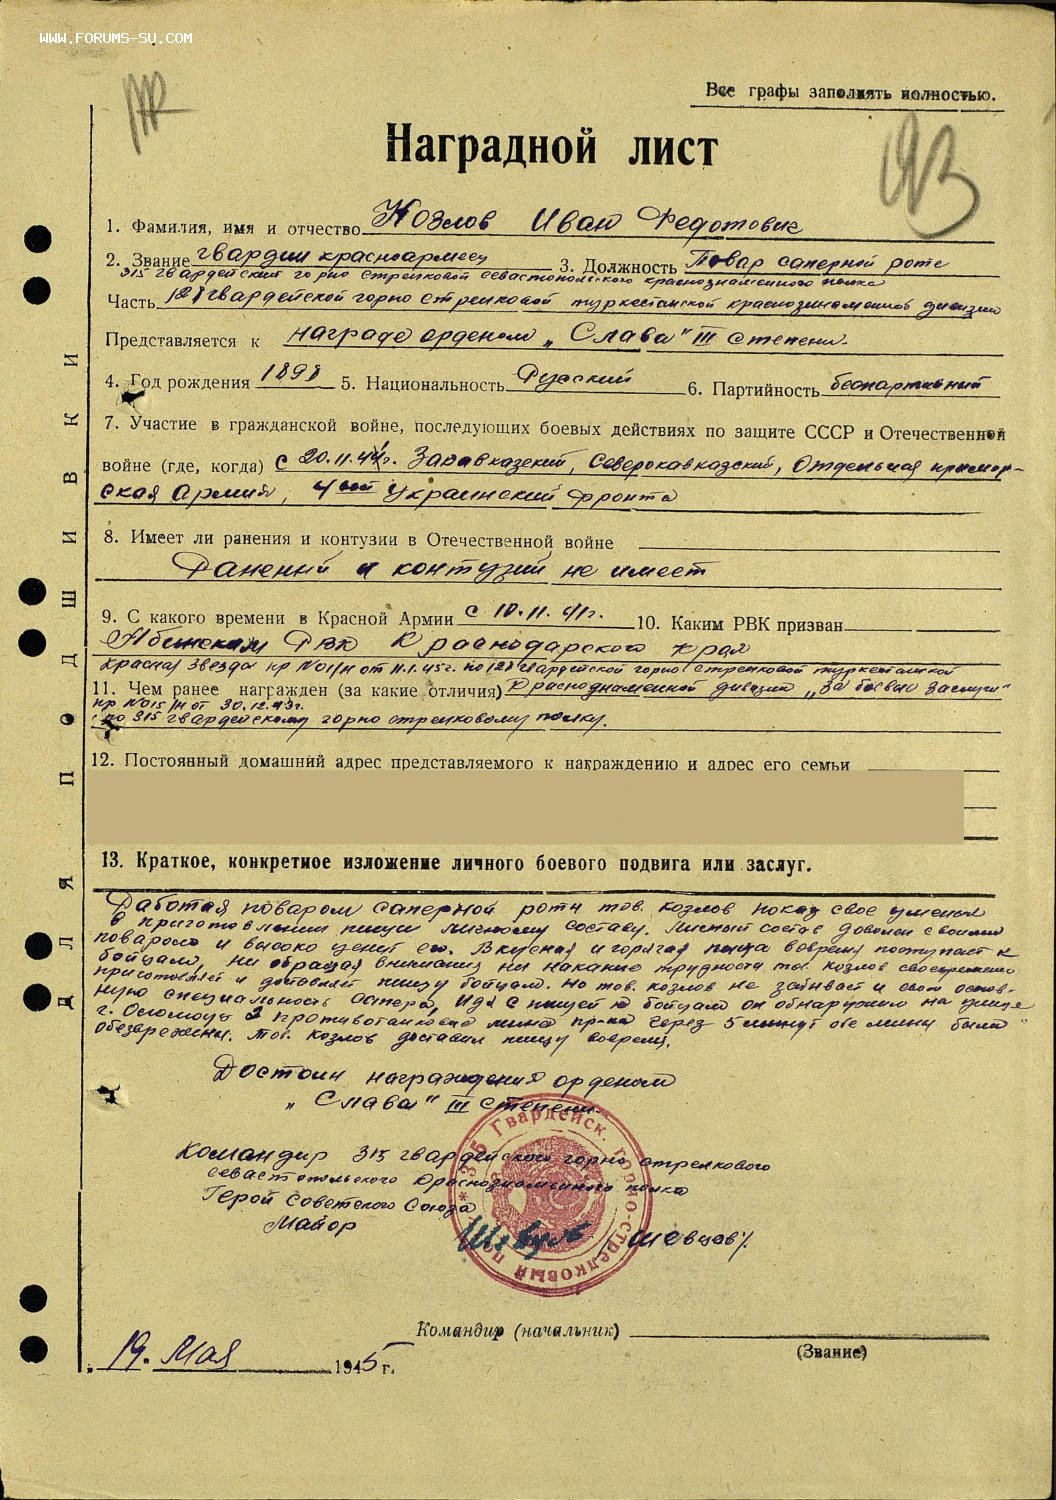 WWW.FORUMS-SU.COM
Все графы заполнять полностью.
93
Наградной лист
1. Фамилия, имя и отчество Козлов Иван Федотович
2. Звание гвардии красноармеец 3. Должность Повар саперной роте
315 гвардейский горно стрелковой севастопольского краснознаменного полка
Часть 128 гвардейской горно стрелковой туркестанской краснознаменной дивизии
Представляется к награде орденом „Слава" III степени.
4. Год рождения 1898 5. Национальность Русский 6. Партийность беспартийный
7. Участие в гражданской войне, последующих боевых действиях по защите СССР и Отечественной
войне (где, когда) с 20.11.41г. Закавказский, Северокавказский, Отдельная примор-
ская Армия, 4ый Украинский фронта
8. Имеет ли ранения и контузии в Отечественной войне
Ранений и контузий не имеет
9. С какого времени в Красной Армии с 10.11.41г. 10. Каким РВК призван
Абинским РВК Краснодарского края
Красная звезда пр № 011/н от 11.1.45г. по 128 гвардейской горно стрелковой туркестанской
11. Чем ранее награжден (за какие отличия) Краснознаменной дивизии „За боевые заслуги"
пр № 015/н от 30.12.43г.
по 315 гвардейскому горно стрелковому полку.
12. Постоянный домашний адрес представляемого к награждению и адрес его семьи
13. Краткое, конкретное изложение личного боевого подвига или заслуг.
Работая поваром саперной роты тов. Козлов показ свое умения
в приготовлении пищи личному составу. Личный состав доволен своими
поваром и высоко ценит его. Вкусная и горячая пища вовремя поступает к
бойцам, ни обращая внимания ни на какие трудности тов. Козлов своевременно
приготовляет и доставляет пищу бойцам. Но тов. Козлов не забывает и свою основ-
ную специальность сапера, идя с пищей к бойцам он обнаружил на улице
г. Оломоуц 2 противотанковые мины пр-ка через 5 минут обе мины были
обезврежены. Тов. Козлов доставил пищу вовремя.
Достоин награждения орденом
„Слава" III степени.
Командир 315 гвардейского горно стрелкового
севастопольского Краснознаменного полка
Герой Советского Союза
Майор /Шевцов/.
315 Гвардейск. горно-стрелковый полк
Командир (начальник)
(Звание)
19. Мая 1945 г.
ДЛЯ ПОДШИВКИ